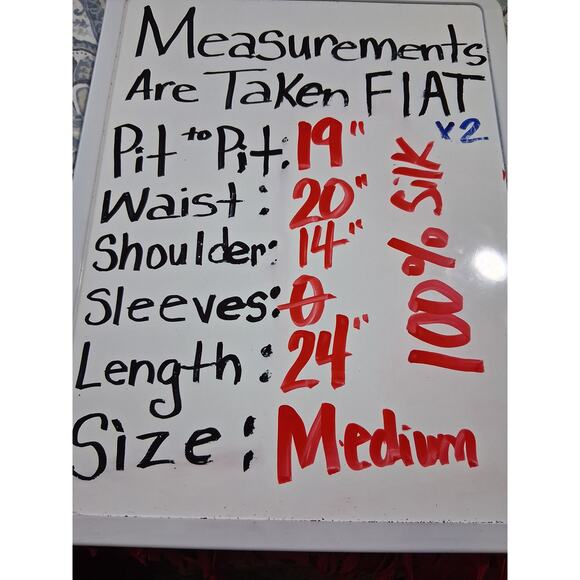 Measurements
Are Taken FlAT
x2
Pit to Pit: 19"
Waist: 20"
Shoulder: 14"
Sleeves: 0
Length: 24"
Size: Medium
100% Silk